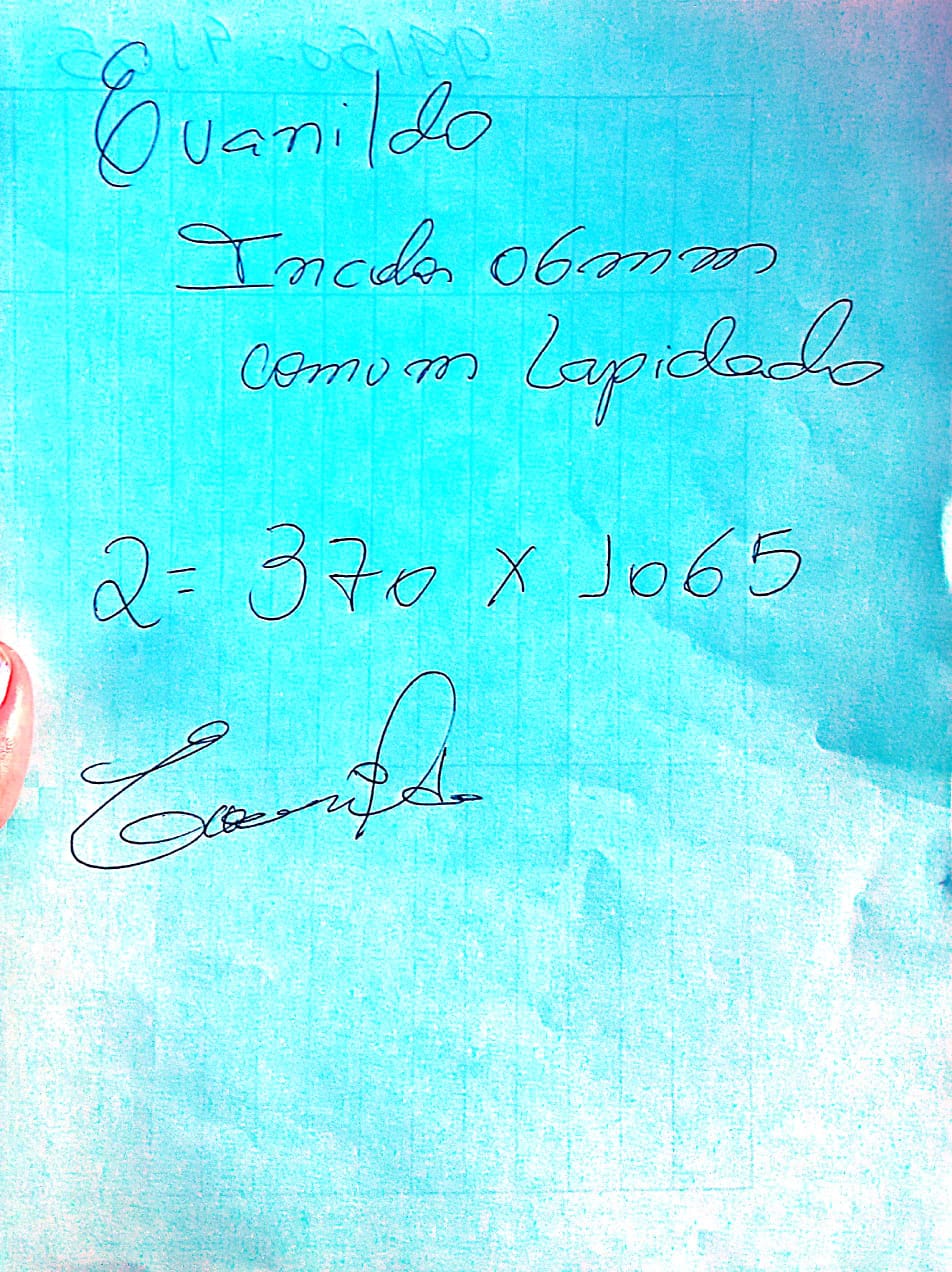 Evanildo
Incolor 06mm
comum Lapidado
2= 370 X 1065
Evanildo